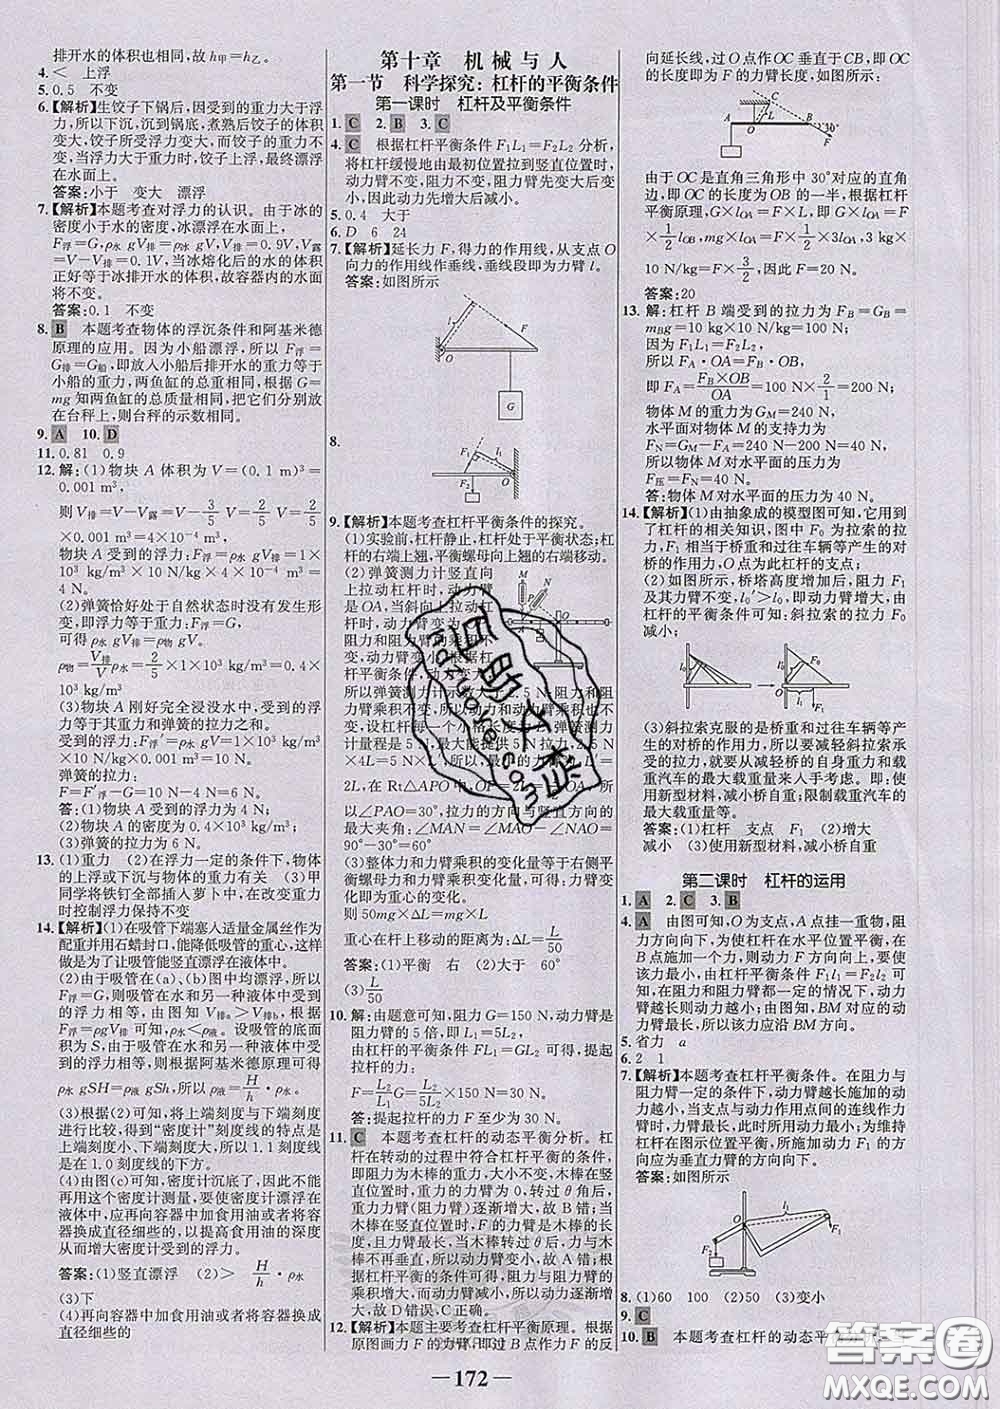 排开水的体积也相同,故 h甲=h乙。
4.<　上浮
5.0.5　不变
6.【解析】生饺子下锅后,因受到的重力大于浮
力,所以下沉,沉到锅底,煮熟后饺子的体积
变大,饺子所受浮力变大,而饺子的重力不变
,当浮力大于重力时,饺子上浮,最终漂浮
在水面上。
答案:小于　变大　漂浮
7.【解析】本题考查对浮力的认识。由于冰的
密度小于水的密度,冰漂浮在水面上,
F浮=G,ρ水 gV排=ρ冰 gV,V排=0.9V,V露
=V-V排=0.1V,当冰熔化后水的体积
正好等于冰排开水的体积,故容器内的水面
将不变。
答案:0.1　不变
8. B　本题考查物体的浮沉条件和阿基米德
原理的应用。因为小船漂浮,所以 F浮=G船,
即放入小船后排开水的重力等于
小船的重力,两鱼缸的总重相同,根据 G=
mg 知两鱼缸的总质量相同,把它们分别放
在台秤上,则台秤的示数相同。
9. A　10. D
11.0.81　0.9
12.解:(1)物块 A 体积为 V=(0.1 m)³=
0.001 m³,
则 V排=V-V露=V-3/5 V=2/5 V=2/5×
0.001 m³=4×10⁻⁴ m³,
物块 A 受到的浮力:F浮=ρ水 gV排=1×10³
kg/m³×10 N/kg×4×10⁻⁴ m³=
4 N。
(2)弹簧恰好处于自然状态时没有发生形
变,即浮力等于重力:F浮=G,
可得 ρ水 gV排=ρ物 gV。
ρ物=V排/V ρ水=2/5×1×10³ kg/m³=
0.4×10³ kg/m³
(3)物块 A 刚好完全浸没水中,受到的浮
力等于其重力和弹簧的拉力之和。
受到的浮力:F浮′=ρ水 gV=1×10³ kg/m³
×10 N/kg×0.001 m³=10 N,
弹簧的拉力:
F=F浮′-G=10 N-4 N=6 N。
答:(1)物块 A 受到的浮力为 4 N;
(2)物块 A 的密度为 0.4×10³ kg/m³;
(3)弹簧的拉力为 6 N。
13.(1)重力　(2)在浮力一定的条件下,物体
的上浮或下沉与物体的重力有关　(3)甲
同学将铁钉全部插入萝卜中,在改变重力
时控制浮力保持不变
14.【解析】(1)在吸管下端塞入适量金属丝作为
配重并用石蜡封口,能降低吸管的重心,这样
做是为了让吸管能竖直漂浮在液体中。
(2)由于吸管在(a)、(b)图中均漂浮,所以
F浮=G,则吸管在水和另一种液体中受到
的浮力相等,由图知 V排a>V排b,根据
F浮=ρ液gV排 可知,ρ水<ρ液。设吸管的底面
积为 S,由于吸管在水和另一种液体中受到的
浮力相等,所以根据阿基米德原理可得
ρ水 gSH=ρ液 gSh,所以 ρ液=H/h·ρ水。
(3)根据(2)可知,将上端刻度与下端刻度
进行比较,得到“密度计”刻度线的特点是
上端刻度小、下端刻度大,所以 1.1 刻度线
是在 1.0 刻度线的下方。
(4)由图(c)可知,密度计沉底了,因此不能
再使用这个密度计测量,要使密度计漂浮在
液体中,应再向容器中加食用油或者将容器
换成直径细些的,以提高食用油的深度
从而增大密度计受到的浮力。
答案:(1)竖直漂浮　(2)>　H/h·ρ水
(3)下
(4)再向容器中加食用油或者将容器换成
直径细些的
第十章　机械与人
第一节　科学探究:杠杆的平衡条件
第一课时　杠杆及平衡条件
1. C　2. B　3. C
4. C　根据杠杆平衡条件 F₁L₁=F₂L₂ 分析,
将杠杆缓慢地由最初位置拉到竖直位置时,
动力臂不变,阻力不变,阻力臂先变大后变
小,因此动力先增大后减小。
5.0.4　大于
6.D　6　24
7.【解析】延长力 F,得力的作用线,从支点 O
向力的作用线作垂线,垂线段即为力臂 l。
答案:如图所示
l　O　F　G
8.
l₁　F₁　O
9.【解析】本题考查杠杆平衡条件的探究。
(1)实验前,杠杆静止,杠杆处于平衡状态;杠
杆的右端上翘,平衡螺母向上翘的右端移动。
(2)弹簧测力计竖直向
上拉动杠杆时,动力臂
是 OA,当斜向上拉动杠
杆时,动力臂变为
阻力和阻力臂不变,
变的
杆平衡条件,动力变大
所以弹簧测力计示数大于 2.5 N,阻力和阻
力臂乘积不变,所以动力和动力臂乘积也不
变,设杠杆每一个小格长度
计量程是 5
×4L=5 N×L′,所以
2L,在 Rt△APO 中,OP=2L=
以∠PAO=30°,拉力的方向与竖直方向的
最大夹角为:∠MAN=∠MAO-∠NAO=
90°-30°=60°
(3)整体力和力臂乘积的变化量等于右侧平
衡螺母力和力臂乘积的变化量,即杠杆平
衡,则 50mg×ΔL=mg×L,
重心在杆上移动的距离为:ΔL=L/50
答案:(1)平衡　右　(2)大于　60°
(3)L/50
10.解:由题意可知,阻力 G=150 N,动力臂是
阻力臂的 5 倍,即 L₁=5L₂,
由杠杆的平衡条件 FL₁=GL₂ 可得,提起
拉杆的力:
F=L₂/L₁ G=L₂/5L₂×150 N=30 N。
答:提起拉杆的力 F 至少为 30 N。
11. C　本题考查杠杆的动态平衡分析。杠
杆在转动的过程中符合杠杆平衡的条件,
即阻力为木棒的重力,大小不变,木棒在竖
直位置时,重力的力臂为 0,转过 θ 角后,
重力力臂(阻力臂)逐渐增大,故 B 错;当木
棒在竖直位置时,F 的力臂是木棒的长度,
此时力臂最长,当木棒转过 θ 角时,木棒
不再垂直,所以动力臂变小,故 A 错;根据
杠杆平衡的条件可得,阻力与阻力臂的
乘积增大,而动力臂减小,所以动力逐渐增
大,故 D 错误,C 正确。
12.【解析】本题主要考查杠杆平衡原理。根据
原图画力 F 的力臂,即过支点 O 作力 F 的反
向延长线,过 O 点作 OC 垂直于 CB,即 OC
的长度即为 F 的力臂长度,如图:
C　A　L　O　B　30°　F
由于 OC 是直角三角形中 30°对应的直角
边,即 OC 的长度为 OB 的一半,根据杠杆
平衡原理,G×l_OA=F×L,即 G×l_OA=F
×1/2 l_OB,mg×l_OA=F×1/2×3l_OA,3 kg×
10 N/kg=F×3/2,因此 F=20 N。
答案:20
13.解:杠杆 B 端受到的拉力为 F_B=G_B=
m_B g=10 kg×10 N/kg=100 N;
因为 F₁L₁=F₂L₂,
所以 F_A·OA=F_B×OB,
即 F_A=F_B×OB/OA=100 N×2/1=200 N,
物体 M 的重力为 G_M=240 N,
水平面对物体 M 的支持力为
F_N=G_M-F_A=240 N-200 N=40 N。
所以物体 M 对水平面的压力为
F压=F_N=40 N。
答:物体 M 对水平面的压力为 40 N。
14.【解析】(1)由抽象成的模型图可知,它用
到了杠杆的相关知识,图中 F₀ 为拉索的拉
力,F₁ 相当于桥重和过往车辆等产生的对
桥的作用力,O 点为此杠杆的支点;
(2)如图所示,桥塔高度增加后,阻力 F₁
及其力臂不变,l₀′>l₀,即动力臂增大,由
杠杆的平衡条件可知:斜拉索的拉力 F₀
减小;
(3)斜拉索克服的是桥重和过往车辆等产
生的对桥的作用力,所以要减轻斜拉索承
受的拉力,就要从减轻桥的自重和控制承
载重汽车的最大载重量来入手考虑。即:使
用新型材料,减小桥自重;限制载重汽车的
最大载重量等。
答案:(1)杠杆　支点　F₁　(2)增大
减小　(3)使用新型材料,减小桥自重
第二课时　杠杆的运用
1. A　2. C　3. B
4. A　由图可知,O 为支点,A 点挂一重物,阻
力方向向下,为使杠杆在水平位置平衡,在
B 点施加一个力,则力的方向应向上,要使
该力最小,由杠杆平衡条件 F₁l₁=F₂l₂ 可
知,在阻力和阻力臂都一定的情况下,动力
臂越长则动力越小,由于 BM 对应的动力
臂最长,所以该力应沿 BM 方向。
5.省力　a
6.2　1
7.【解析】本题考查杠杆平衡条件。在阻力与
阻力臂一定的条件下,动力臂越长施加的动
力越小,当支点与动力作用点间的连线作力
臂时,力臂最大,此时的力最小,为维持
杠杆在图示位置平衡,此时动力 F₁ 的方向
应为垂直力臂的方向向下。
答案:如图所示
l₁　O　F₁　A　F₂
8.(1)60　100　(2)50　(3)变小
9. C
10. B　本题考查杠杆的动态平
— 172 —
答案圈
MXQE.COM